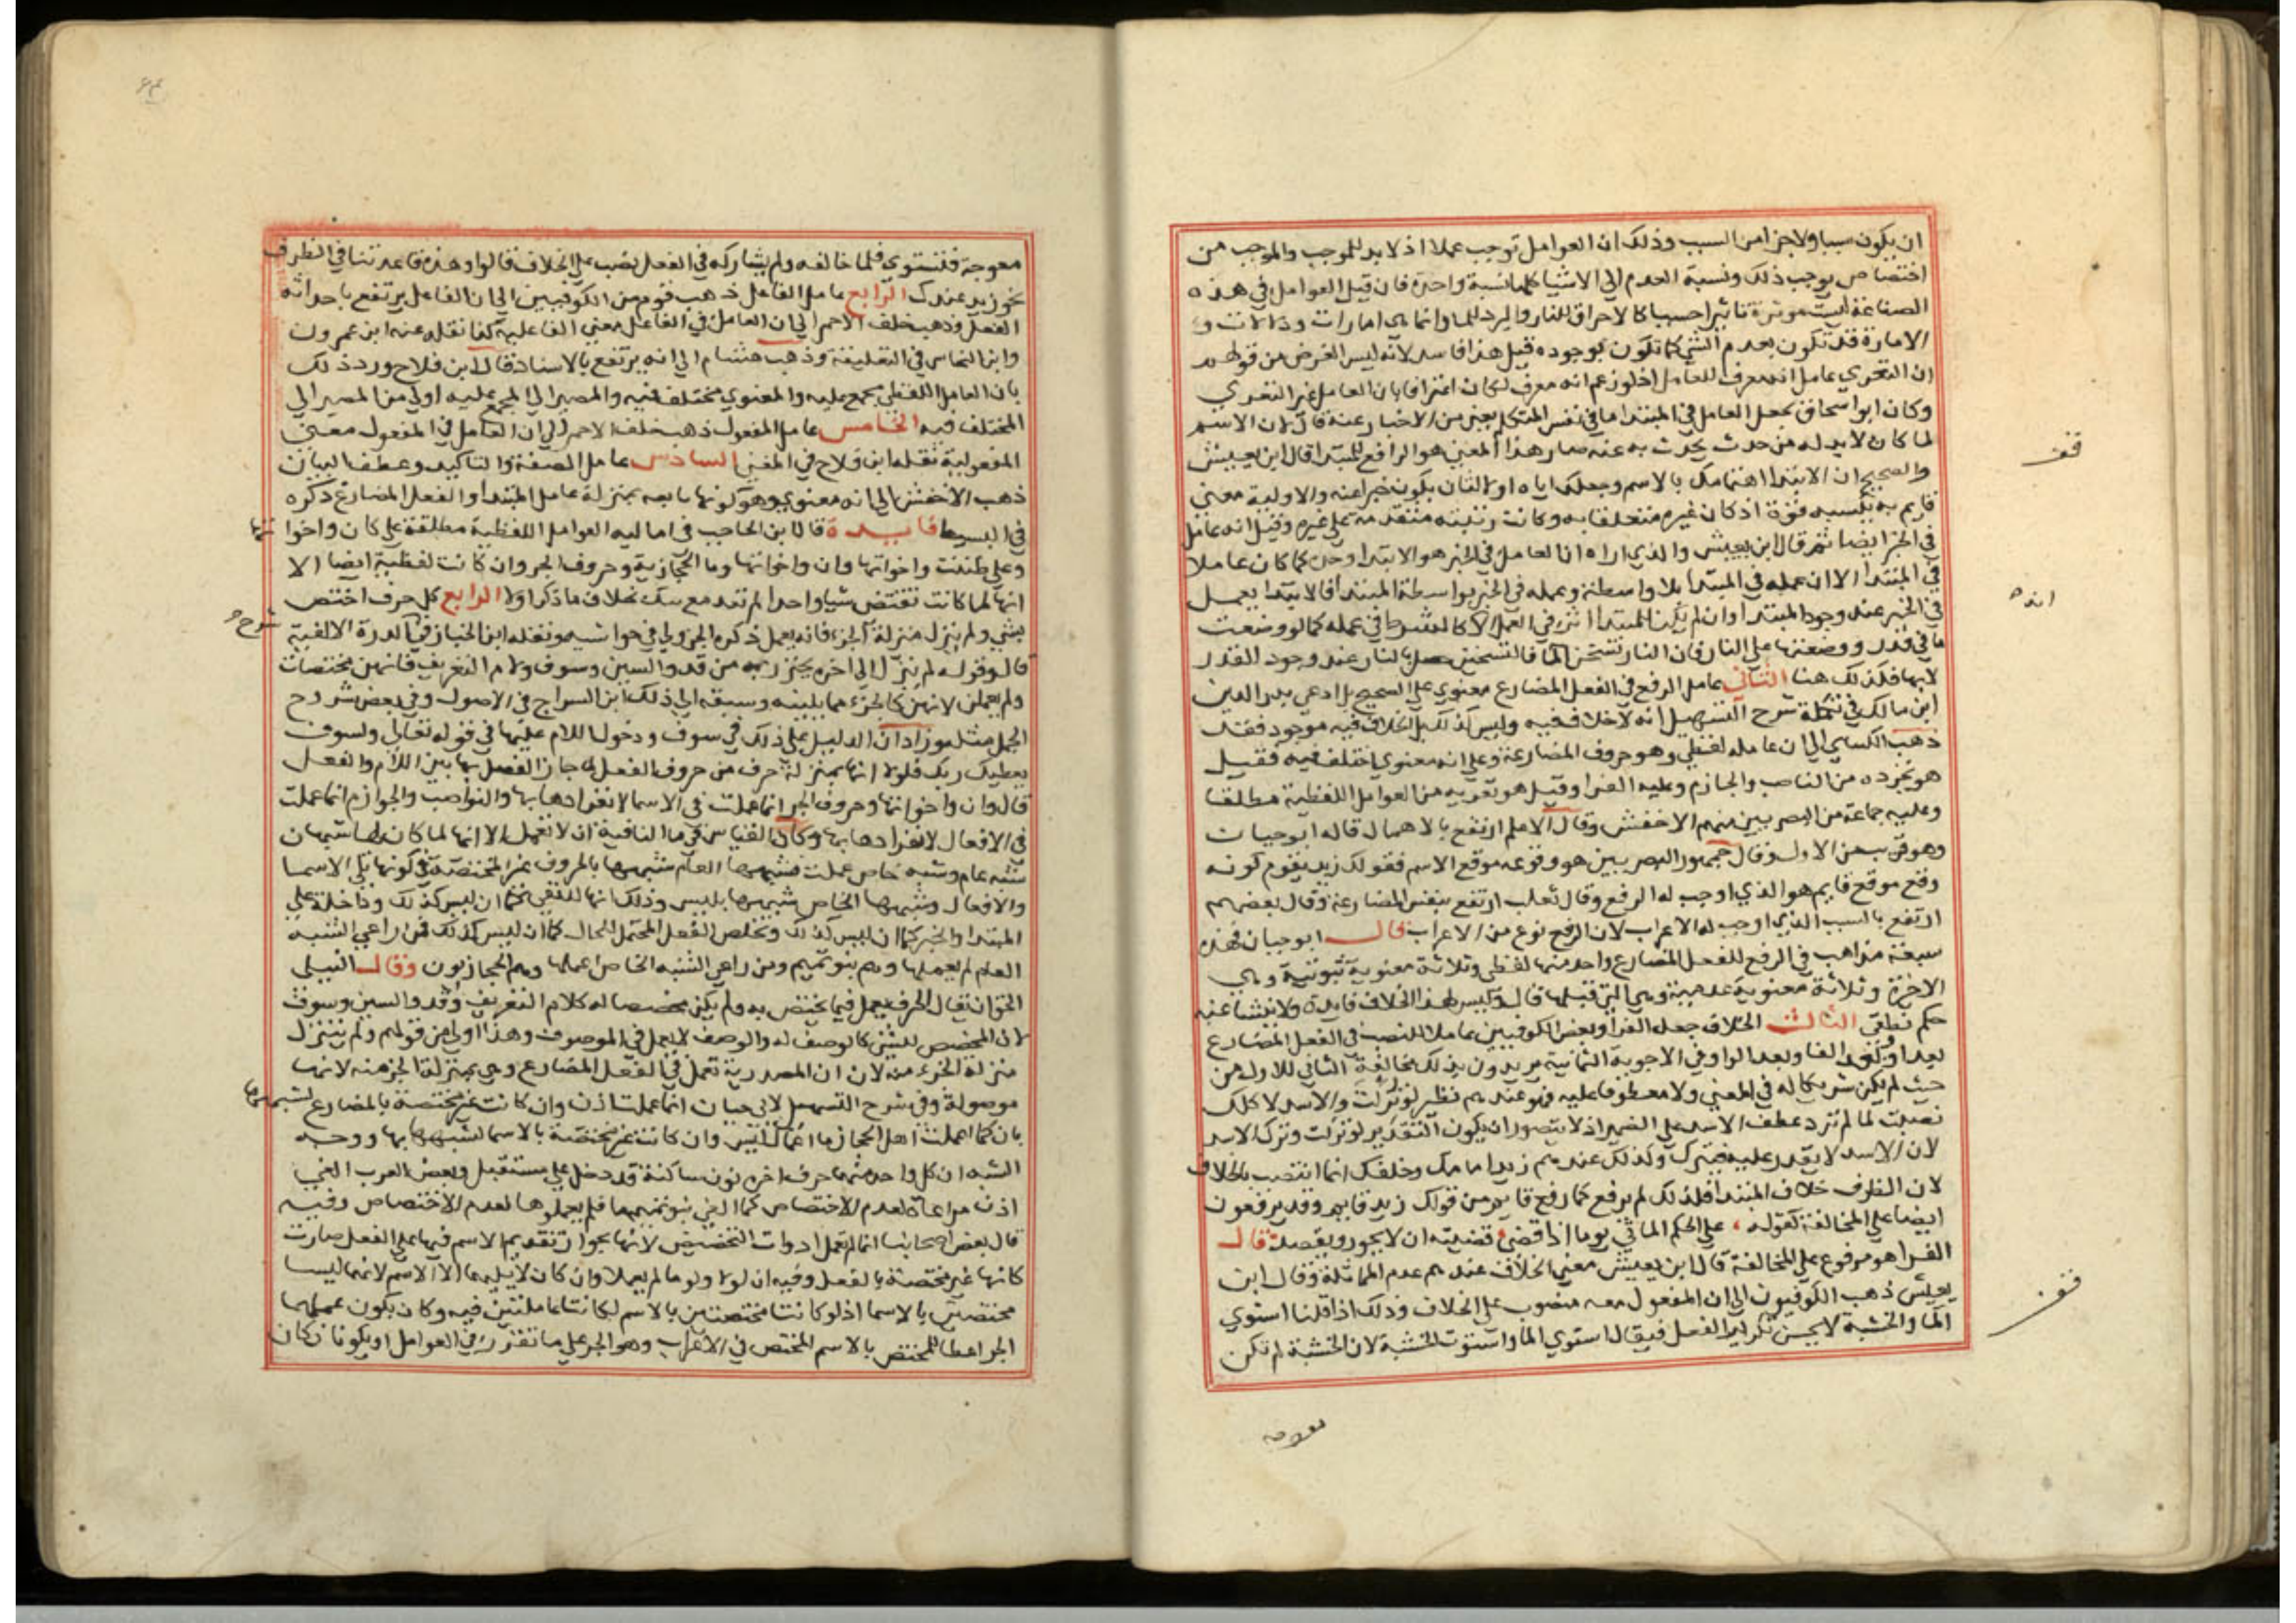 ان يكون سببا ولا جزا من السبب وذلك ان العوامل توجب عملا اذ لابد للموجب والموجب من
اختصاص يوجب ذلك ونسبة العدم الي الاشيا كلها نسبة واحدة فان قيل العوامل في هذه
الصناعة ليست موثرة تاثيرا حسيا كالاحراق للنار والبرد للما وانما هي امارات ودلالات و
الامارة قد تكون بعدم الشي كما تكون بوجوده قيل هذا فاسد لانه ليس الغرض من قولهم
ان التعري عامل انه معرف للعامل اذ لو زعم انه معرف لكان اعترافا بان العامل غير التعري
وكان ابو اسحاق يجعل العامل في المبتدا ما في نفس المتكلم يعني من الاخبار عنه قال لان الاسم
لما كان لابد له من حدث يحدث به عنه صار هذا المعني هو الرافع للمبتدا قال ابن يعيش
والصحيح ان الابتدا اهتمامك بالاسم وجعلك اياه اولا لثان يكون خبرا عنه والاولية معني
قايم به يكسبه قوة اذ كان غيره متعلقا به وكانت رتبته متقدمة علي غيره وقيل انه عامل
في الخبر ايضا ثم قال ابن يعيش والذي اراه ان العامل في الخبر هو الابتدا وحده كما كان عاملا
في المبتدا الا ان عمله في المبتدا بلا واسطة وعمله في الخبر بواسطة المبتدا فالابتدا يعمل
في الخبر عند وجود المبتدا وان لم يكن للمبتدا اثر في العمل الا كالشرط في عمله كما لو وضعت
ما في قدر ووضعتها علي النار فان النار تسخن الما فالتسخين حصل بالنار عند وجود القدر
لا بها فكذلك هنا الثاني عامل الرفع في الفعل المضارع معنوي علي الصحيح بل ادعي بدر الدين
ابن مالك في تكملة شرح التسهيل انه لا خلاف فيه وليس كذلك بل الخلاف فيه موجود فقد
ذهب الكسايي الي ان عامله لفظي وهو حروف المضارعة وعلي انه معنوي اختلف فيه فقيل
هو تجرده من الناصب والجازم وعليه الفرا وقيل هو تعريه من العوامل اللفظية مطلقا
وعليه جماعة من البصريين منهم الاخفش وقال الاعلم ارتفع بالاهمال قاله ابو حيان
وهو قريب من الاول وقال جمهور البصريين هو وقوعه موقع الاسم فقولك زيد يقوم كونه
وقع موقع قايم هو الذي اوجب له الرفع وقال ثعلب ارتفع بنفس المضارعة وقال بعضهم
ارتفع بالسبب الذي اوجب له الاعراب لان الرفع نوع من الاعراب قال ابو حيان فهذه
سبعة مذاهب في الرفع للفعل المضارع واحد منها لفظي وثلاثة معنوية ثبوتية وهي
الاخيرة وثلاثة معنوية عدمية وهي التي قبلها قال وليس لهذا الخلاف فايدة ولا ينشا عنه
حكم نطقي الثالث الخلاف جعله الفرا وبعض الكوفيين عاملا للنصب في الفعل المضارع
بعد او وبعد الفا وبعد الواو في الاجوبة الثمانية يريدون بذلك مخالفة الثاني للاول من
حيث لم يكن شريكا له في المعني ولا معطوفا عليه فهو عندهم نظير لو تركت والاسد لاكلك
نصبت لما لم ترد عطف الاسد علي الضمير اذ لا يتصور ان يكون التقدير لو تركت وترك الاسد
لان الاسد لا يقدر عليه فيترك وكذلك عندهم زيد امامك وخلفك انما انتصب بالخلاف
لان الظرف خلاف المبتدا فلذلك لم يرفع كما رفع قايم من قولك زيد قايم وقد يرفعون
ايضا علي المخالفة كقوله ، علي الحكم الماتي يوما اذا قضي قضيته ان لا يجور ويقصد قال
الفرا هو مرفوع علي المخالفة قال ابن يعيش معني الخلاف عندهم عدم المماثلة وقال ابن
يعيش ذهب الكوفيون الي ان المفعول معه منصوب علي الخلاف وذلك اذا قلنا استوي
الما والخشبة لا يحسن تكرير الفعل فيقال استوي الما واستوت الخشبة لان الخشبة لم تكن
معوجة
قف
انه
قف
معوجة فتستوي فلما خالفه ولم يشاركه في الفعل نصب علي الخلاف قالوا وهذه قاعدتنا في الظرف
نحو زيد عندك الرابع عامل الفاعل ذهب قوم من الكوفيين الي ان الفاعل يرتفع باحداثه
الفعل وذهب خلف الاحمر الي ان العامل في الفاعل معني الفاعلية كذا نقله عنه ابن عمرون
وابن النحاس في التعليقة وذهب هشام الي انه يرتفع بالاسناد قال ابن فلاح ورد ذلك
بان العامل اللفظي مجمع عليه والمعنوي مختلف فيه والمصير الي المجمع عليه اولي من المصير الي
المختلف فيه الخامس عامل المفعول ذهب خلف الاحمر الي ان العامل في المفعول معني
المفعولية نقله ابن فلاح في المغني السادس عامل الصفة والتاكيد وعطف البيان
ذهب الاخفش الي انه معنوي وهو كونها تابعه بمنزلة عامل المبتدا والفعل المضارع ذكره
في البسيط فايدة قال ابن الحاجب في اماليه العوامل اللفظية مطلقة علي كان واخواتها
وعلي ظننت واخواتها وان واخواتها وما الحجازية وحروف الجر وان كانت لفظية ايضا الا
انها لما كانت تقتضي شيا واحدا لم تعد مع تلك بخلاف ما ذكر اولا الرابع كل حرف اختص
بشي ولم ينزل منزلة الجزء فانه يعمل ذكره الجزولي في حواشيه ونقله ابن الخباز في شرح الدرة الالفية
قال وقوله لم ينزل الي اخره يحترز به من قد والسين وسوف ولام التعريف فانهن مختصات
ولم يعملن لانهن كالجزء مما يلينه وسبقه الي ذلك ابن السراج في الاصول وفي بعض شروح
الجمل مثله وزاد ان الدليل علي ذلك في سوف ودخول اللام عليها في قوله تعالي ولسوف
يعطيك ربك فلولا انها بمنزلة حرف من حروف الفعل لما جاز الفصل بها بين اللام والفعل
قال وان واخواتها وحروف الجر انما عملت في الاسما لانفرادها بها والنواصب والجوازم انما عملت
في الافعال لانفرادها بها وكان القياس في ما النافية ان لا تعمل الا انها لما كان لها شبهان
شبه عام وشبه خاص عملت فشبهها العام شبهها بالحروف غير المختصة في كونها تلي الاسما
والافعال وشبهها الخاص شبهها بليس وذلك انها للنفي كما ان ليس كذلك وداخلة علي
المبتدا والخبر كما ان ليس كذلك وتخلص الفعل المحتمل للحال كما ان ليس كذلك فمن راعي الشبه
العام لم يعملها وهم بنو تميم ومن راعي الشبه الخاص اعملها وهم الحجازيون وقال النيلي
الحق ان يقال الحرف يعمل فيما يختص به ولم يكن مخصصا له كلام التعريف وقد والسين وسوف
لان المخصص للشي كالوصف له والوصف لا يعمل في الموصوف وهذا اولي من قولهم ولم يتنزل
منزلة الجزء منه لان ان المصدرية تعمل في الفعل المضارع وهي بمنزلة الجزء منه لانها
موصولة وفي شرح التسهيل لابي حيان انما عملت اذن وان كانت غير مختصة بالمضارع لشبهها
بان كما اعملت اهل الحجاز ما اعمال ليس وان كانت غير مختصة بالاسما لشبهها بها ووجه
الشبه ان كل واحد منهما حرف اخره نون ساكنة قد دخل علي مستقبل وبعض العرب الغي
اذن مراعاة لعدم الاختصاص كما الغي بنو تميم ما فلم يعملوها لعدم الاختصاص وفيه
قال بعض اصحابنا انما لم تعمل ادوات التخصيص لانها بجواز تقديم الاسم فيها علي الفعل صارت
كانها غير مختصة بالفعل وفيه ان لولا ولوما لم يعملا وان كان لا يليهما الا الاسم لانهما ليسا
مختصين بالاسما اذ لو كانتا مختصتين بالاسم لكانتا عاملتين فيه وكان يكون عملهما
الجر اعطا للمختص بالاسم المختص في الاعراب وهو الجر علي ما تقرر في العوامل او يكونان كان